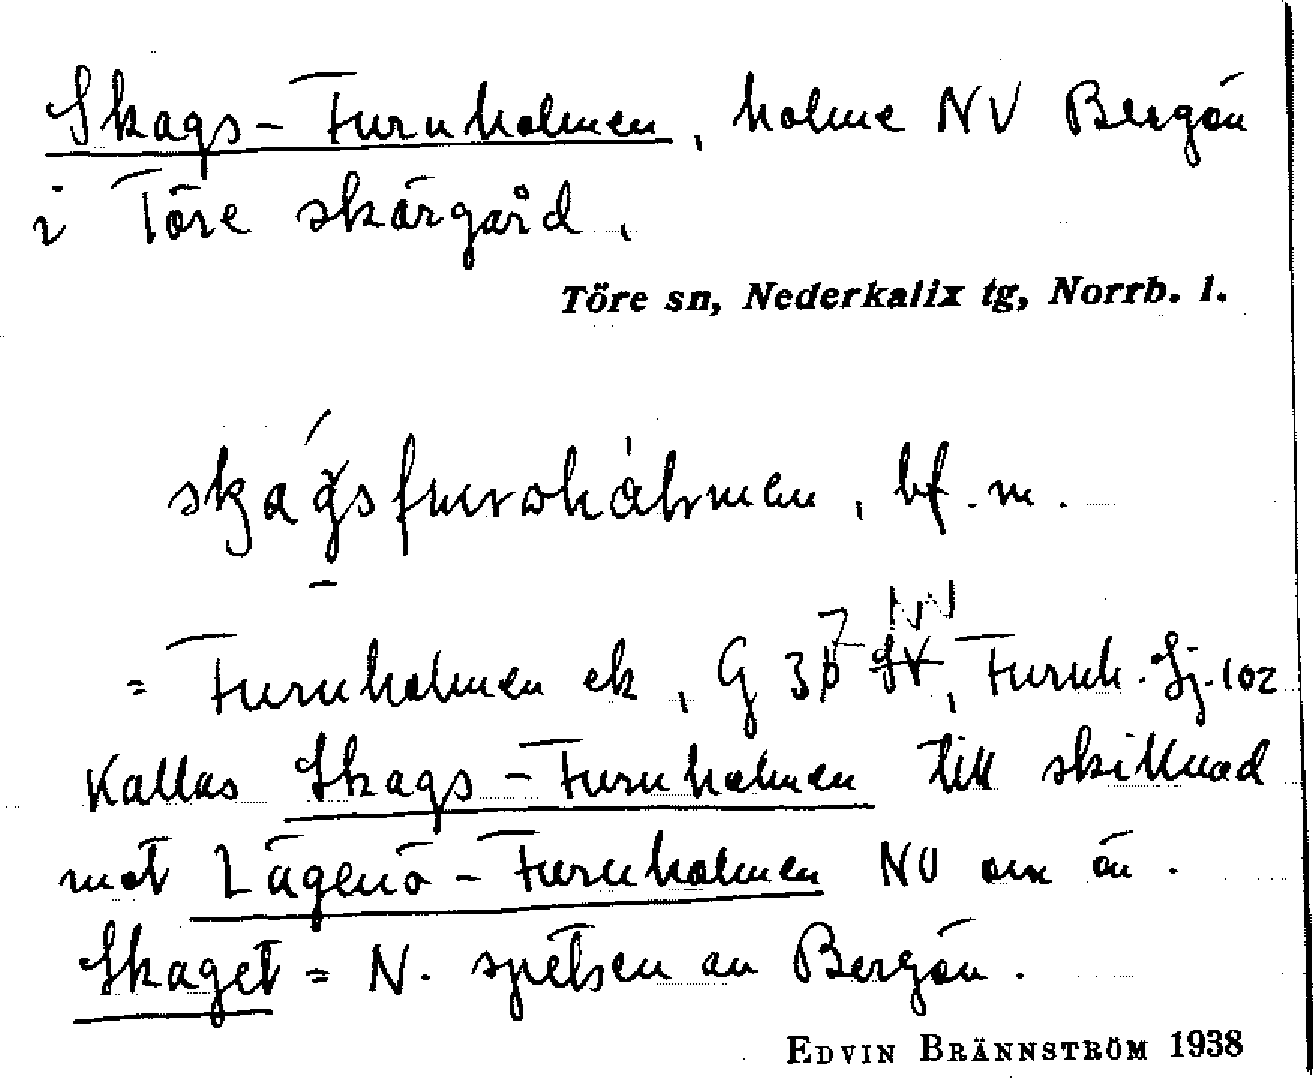 Skags-Furuholmen, holme NV Bergön
i Töre skärgård.
Töre sn, Nederkalix tg, Norrb. l.
bf. m.
= Furuholmen ek, G 37 NV, Furuh. Sj. 102
Kallas Skags-Furuholmen till skillnad
mot Lägenö-Furuholmen NV om ön.
Skaget = N. spetsen av Bergön.
EDVIN BRÄNNSTRÖM 1938